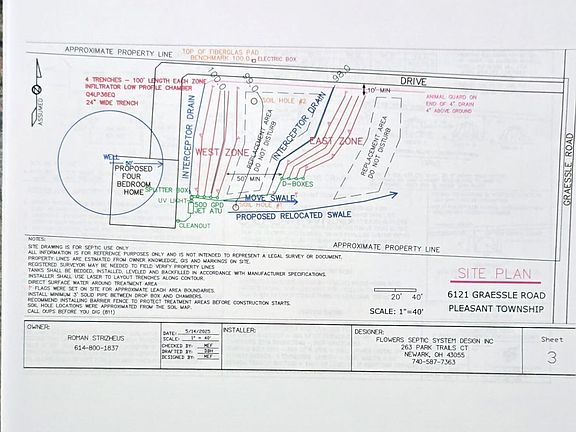 APPROXIMATE PROPERTY LINE
TOP OF FIBERGLAS PAD
BENCHMARK 100.0
ELECTRIC BOX
4 TRENCHES - 100' LENGTH EACH ZONE
INFILTRATOR LOW PROFILE CHAMBER
Q4LP36EQ
24" WIDE TRENCH
ASSUMED
100.0
99.0
98.0
DRIVE
10' MIN
ANIMAL GUARD ON
END OF 4" DRAIN
4" ABOVE GROUND
GRAESSLE ROAD
SOIL HOLE #2
INTERCEPTOR DRAIN
REPLACEMENT AREA
DO NOT DISTURB
INTERCEPTOR DRAIN
REPLACEMENT AREA
DO NOT DISTURB
WEST ZONE
EAST ZONE
WELL
PROPOSED
FOUR
BEDROOM
HOME
50' MIN
SPLITTER BOX
UV LIGHT
500 GPD
JET ATU
D-BOXES
MOVE SWALE
SOIL HOLE #1
PROPOSED RELOCATED SWALE
CLEANOUT
APPROXIMATE PROPERTY LINE
NOTES:
SITE DRAWING IS FOR SEPTIC USE ONLY
ALL INFORMATION IS FOR REFERENCE PURPOSES ONLY AND IS NOT INTENDED TO REPRESENT A LEGAL SURVEY OR DOCUMENT.
PROPERTY LINES ARE ESTIMATED FROM OWNER KNOWLEDGE, GIS AND MARKINGS ON SITE.
REGISTERED SURVEYOR MAY BE NEEDED TO FIELD VERIFY PROPERTY LINES
TANKS SHALL BE BEDDED, INSTALLED, LEVELED AND BACKFILLED IN ACCORDANCE WITH MANUFACTURER SPECIFICATIONS.
INSTALLER SHALL USE LASER TO LAYOUT TRENCHES ALONG CONTOUR.
DIRECT SURFACE WATER AROUND TREATMENT AREA
7' FLAGS WERE SET ON SITE FOR APPROXIMATE LEACH AREA BOUNDARIES.
INSTALL MINIMUM 3' SOLID PIPE BETWEEN DROP BOX AND CHAMBERS.
RECOMMEND INSTALLING BARRIER FENCE TO PROTECT TREATMENT AREAS BEFORE CONSTRUCTION STARTS.
SOIL HOLE LOCATIONS WERE APPROXIMATED FROM THE SOIL MAP.
CALL OUPS BEFORE YOU DIG (811)
SITE PLAN
6121 GRAESSLE ROAD
PLEASANT TOWNSHIP
20' 40'
SCALE: 1"=40'
OWNER:
ROMAN STRIZHEUS
614-800-1837
DATE: 5/14/2025
SCALE: 1" = 40'
CHECKED BY: MEF
DRAFTED BY: DBH
DESIGNED BY: MEF
INSTALLER:
DESIGNER:
FLOWERS SEPTIC SYSTEM DESIGN INC
263 PARK TRAILS CT
NEWARK, OH 43055
740-587-7363
Sheet
3